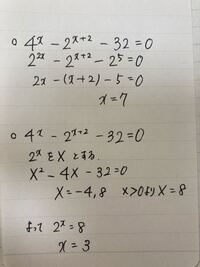 ○ 4ˣ - 2ˣ⁺² - 32 = 0
2²ˣ - 2ˣ⁺² - 2⁵ = 0
2x - (x+2) - 5 = 0
x = 7
○ 4ˣ - 2ˣ⁺² - 32 = 0
2ˣをXとする.
X² - 4X - 32 = 0
X = -4, 8 X>0よりX = 8
よって 2ˣ = 8
x = 3